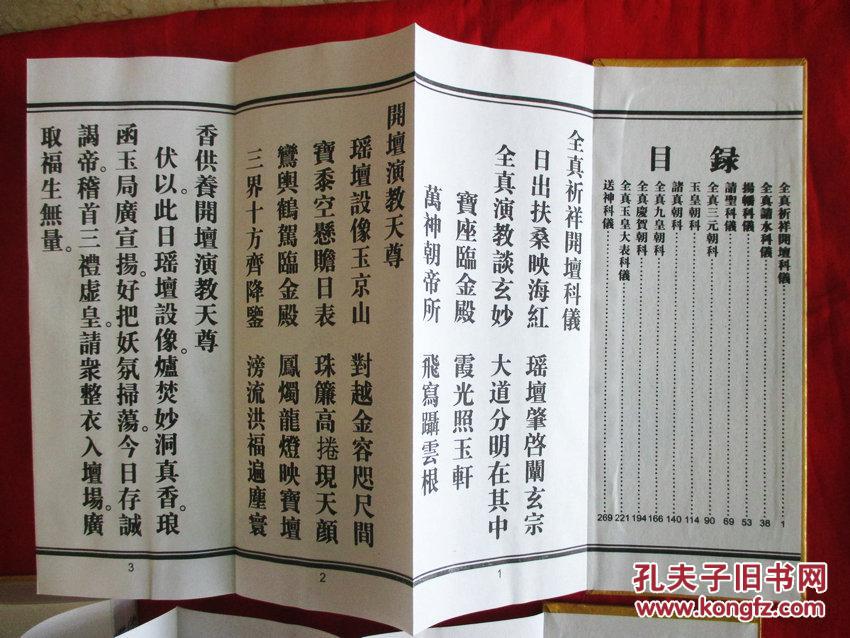 目錄
全真祈祥開壇科儀 1
全真請水科儀 38
揚幡科儀 53
請聖科儀 69
全真三元朝科 90
玉皇朝科 114
諸真朝科 140
全真九皇朝科 166
全真慶賀朝科 194
全真玉皇大表科儀 221
送神科儀 269
全真祈祥開壇科儀
日出扶桑映海紅 瑶壇肇啓闡玄宗
全真演教談玄妙 大道分明在其中
寶座臨金殿 霞光照玉軒
萬神朝帝所 飛舄躡雲根
1
開壇演教天尊
瑶壇設像玉京山 對越金容咫尺間
寶黍空懸瞻日表 珠簾高捲現天顔
鸞輿鶴駕臨金殿 鳳燭龍燈映寶壇
三界十方齊降鑒 滂流洪福遍塵寰
2
香供養開壇演教天尊
伏以此日瑶壇設像。爐焚妙洞真香。琅
函玉局廣宣揚。好把妖氛掃蕩。今日存誠
謁帝。稽首三禮虚皇。請衆整衣入壇場。廣
取福生無量。
3
孔夫子旧书网
www.kongfz.com